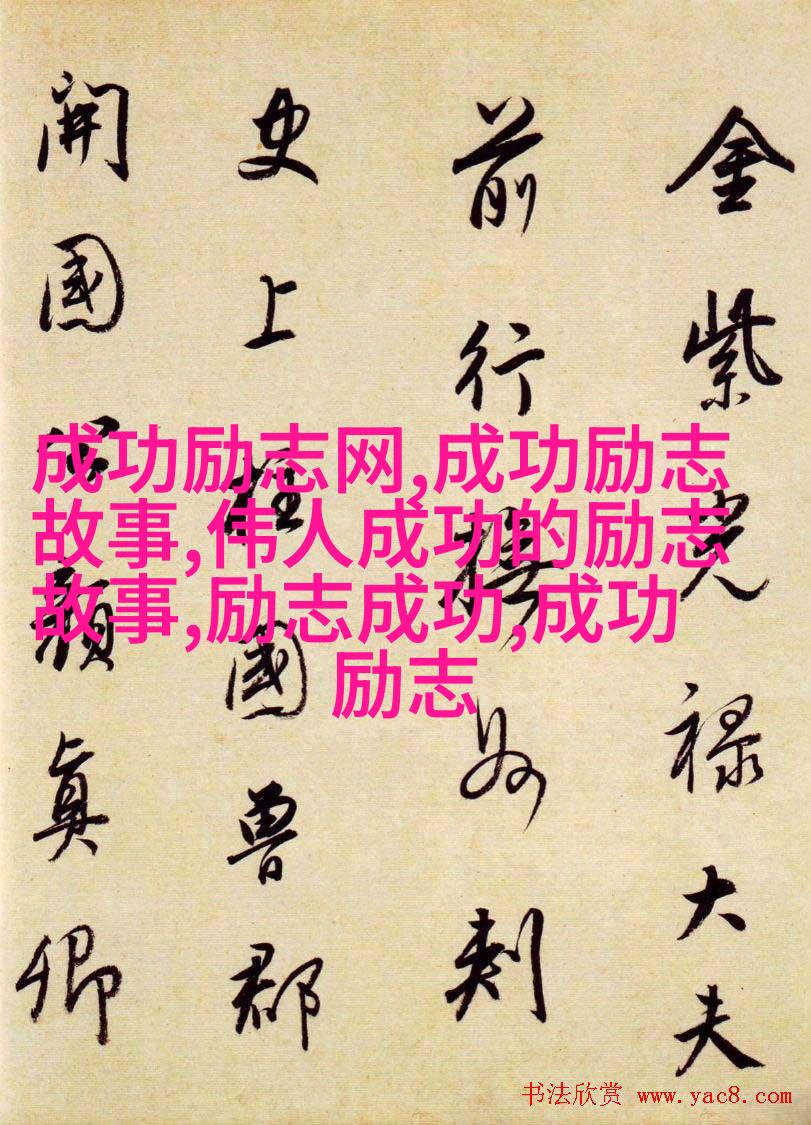 金紫光禄大夫
前行撫州刺
史上柱國魯郡
開國公顏真卿
成功励志网,成功励志
故事,伟人成功的励志
故事,励志成功,成功
励志
书法欣赏 www.yac8.com